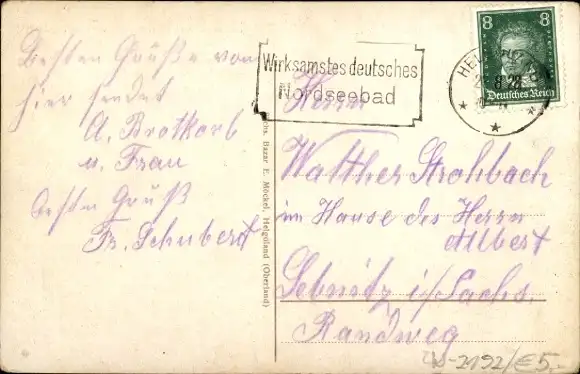 Besten Grüße von
hier sendet
A. Brotkorb
u. Frau
besten Gruß
Fr. Schubert
Wirksamstes deutsches
Nordseebad
8 8
Deutsches Reich
HEL
8.28
Bazar E. Möckel, Helgoland (Oberland)
Herrn
Walther Strohbach
im Hause des Herrn
Albert
Sebnitz i/Sachs
Randweg
2192/€5.-